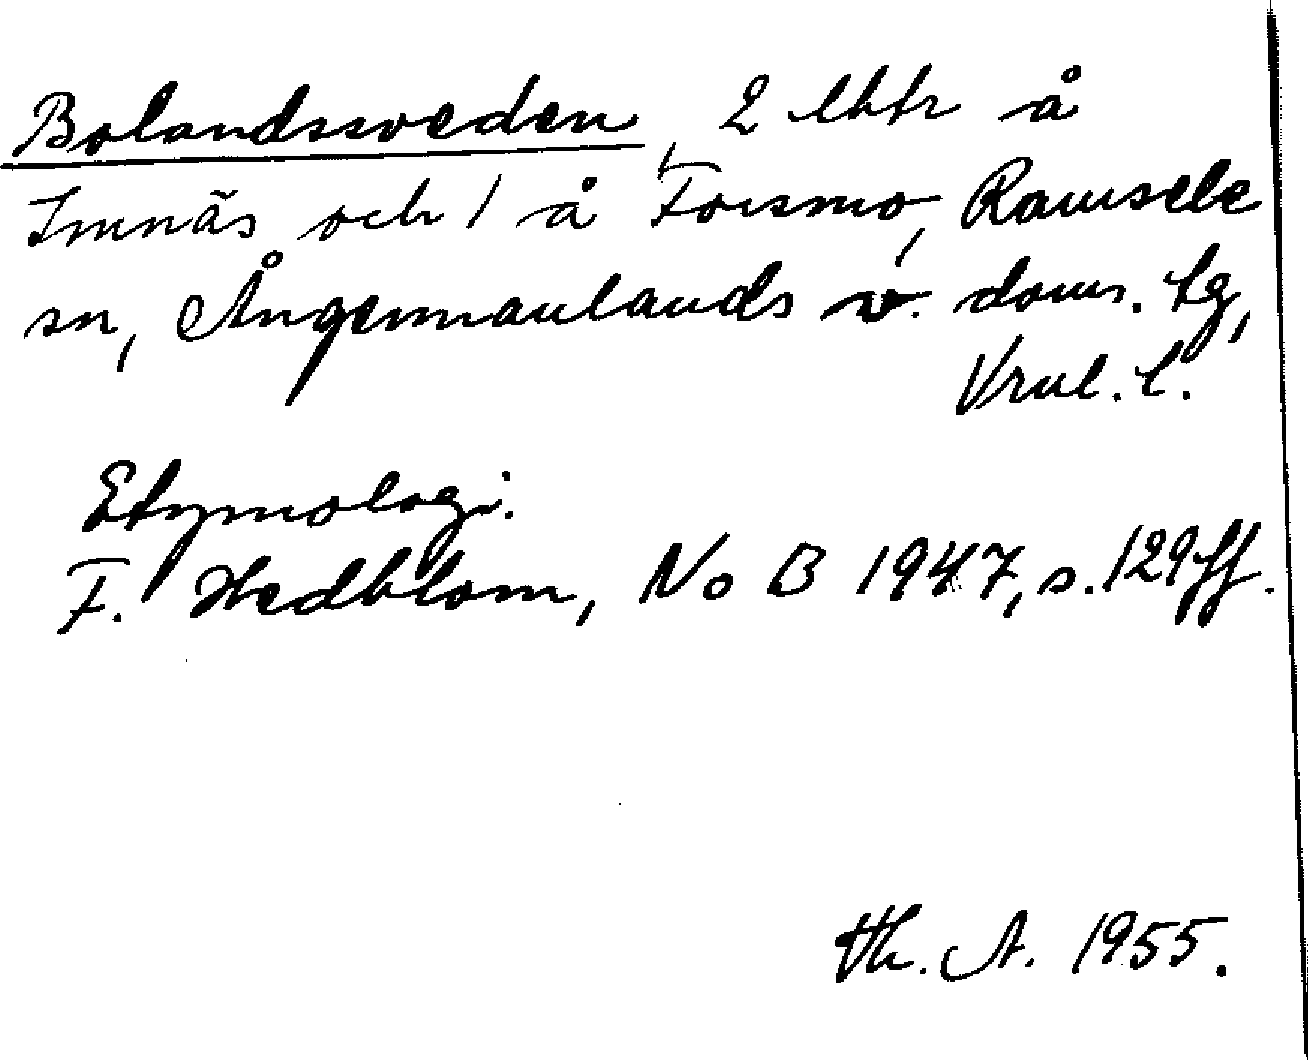 Bolandssveden, 2 lhtr å
Imnäs och 1 å Forsmo, Ramsele
sn, Ångermanlands v. doms. tg,
Vrml. l.
Etymologi.
F. Hedblom, No B 1947, s. 129 ff.
Th. A. 1955.